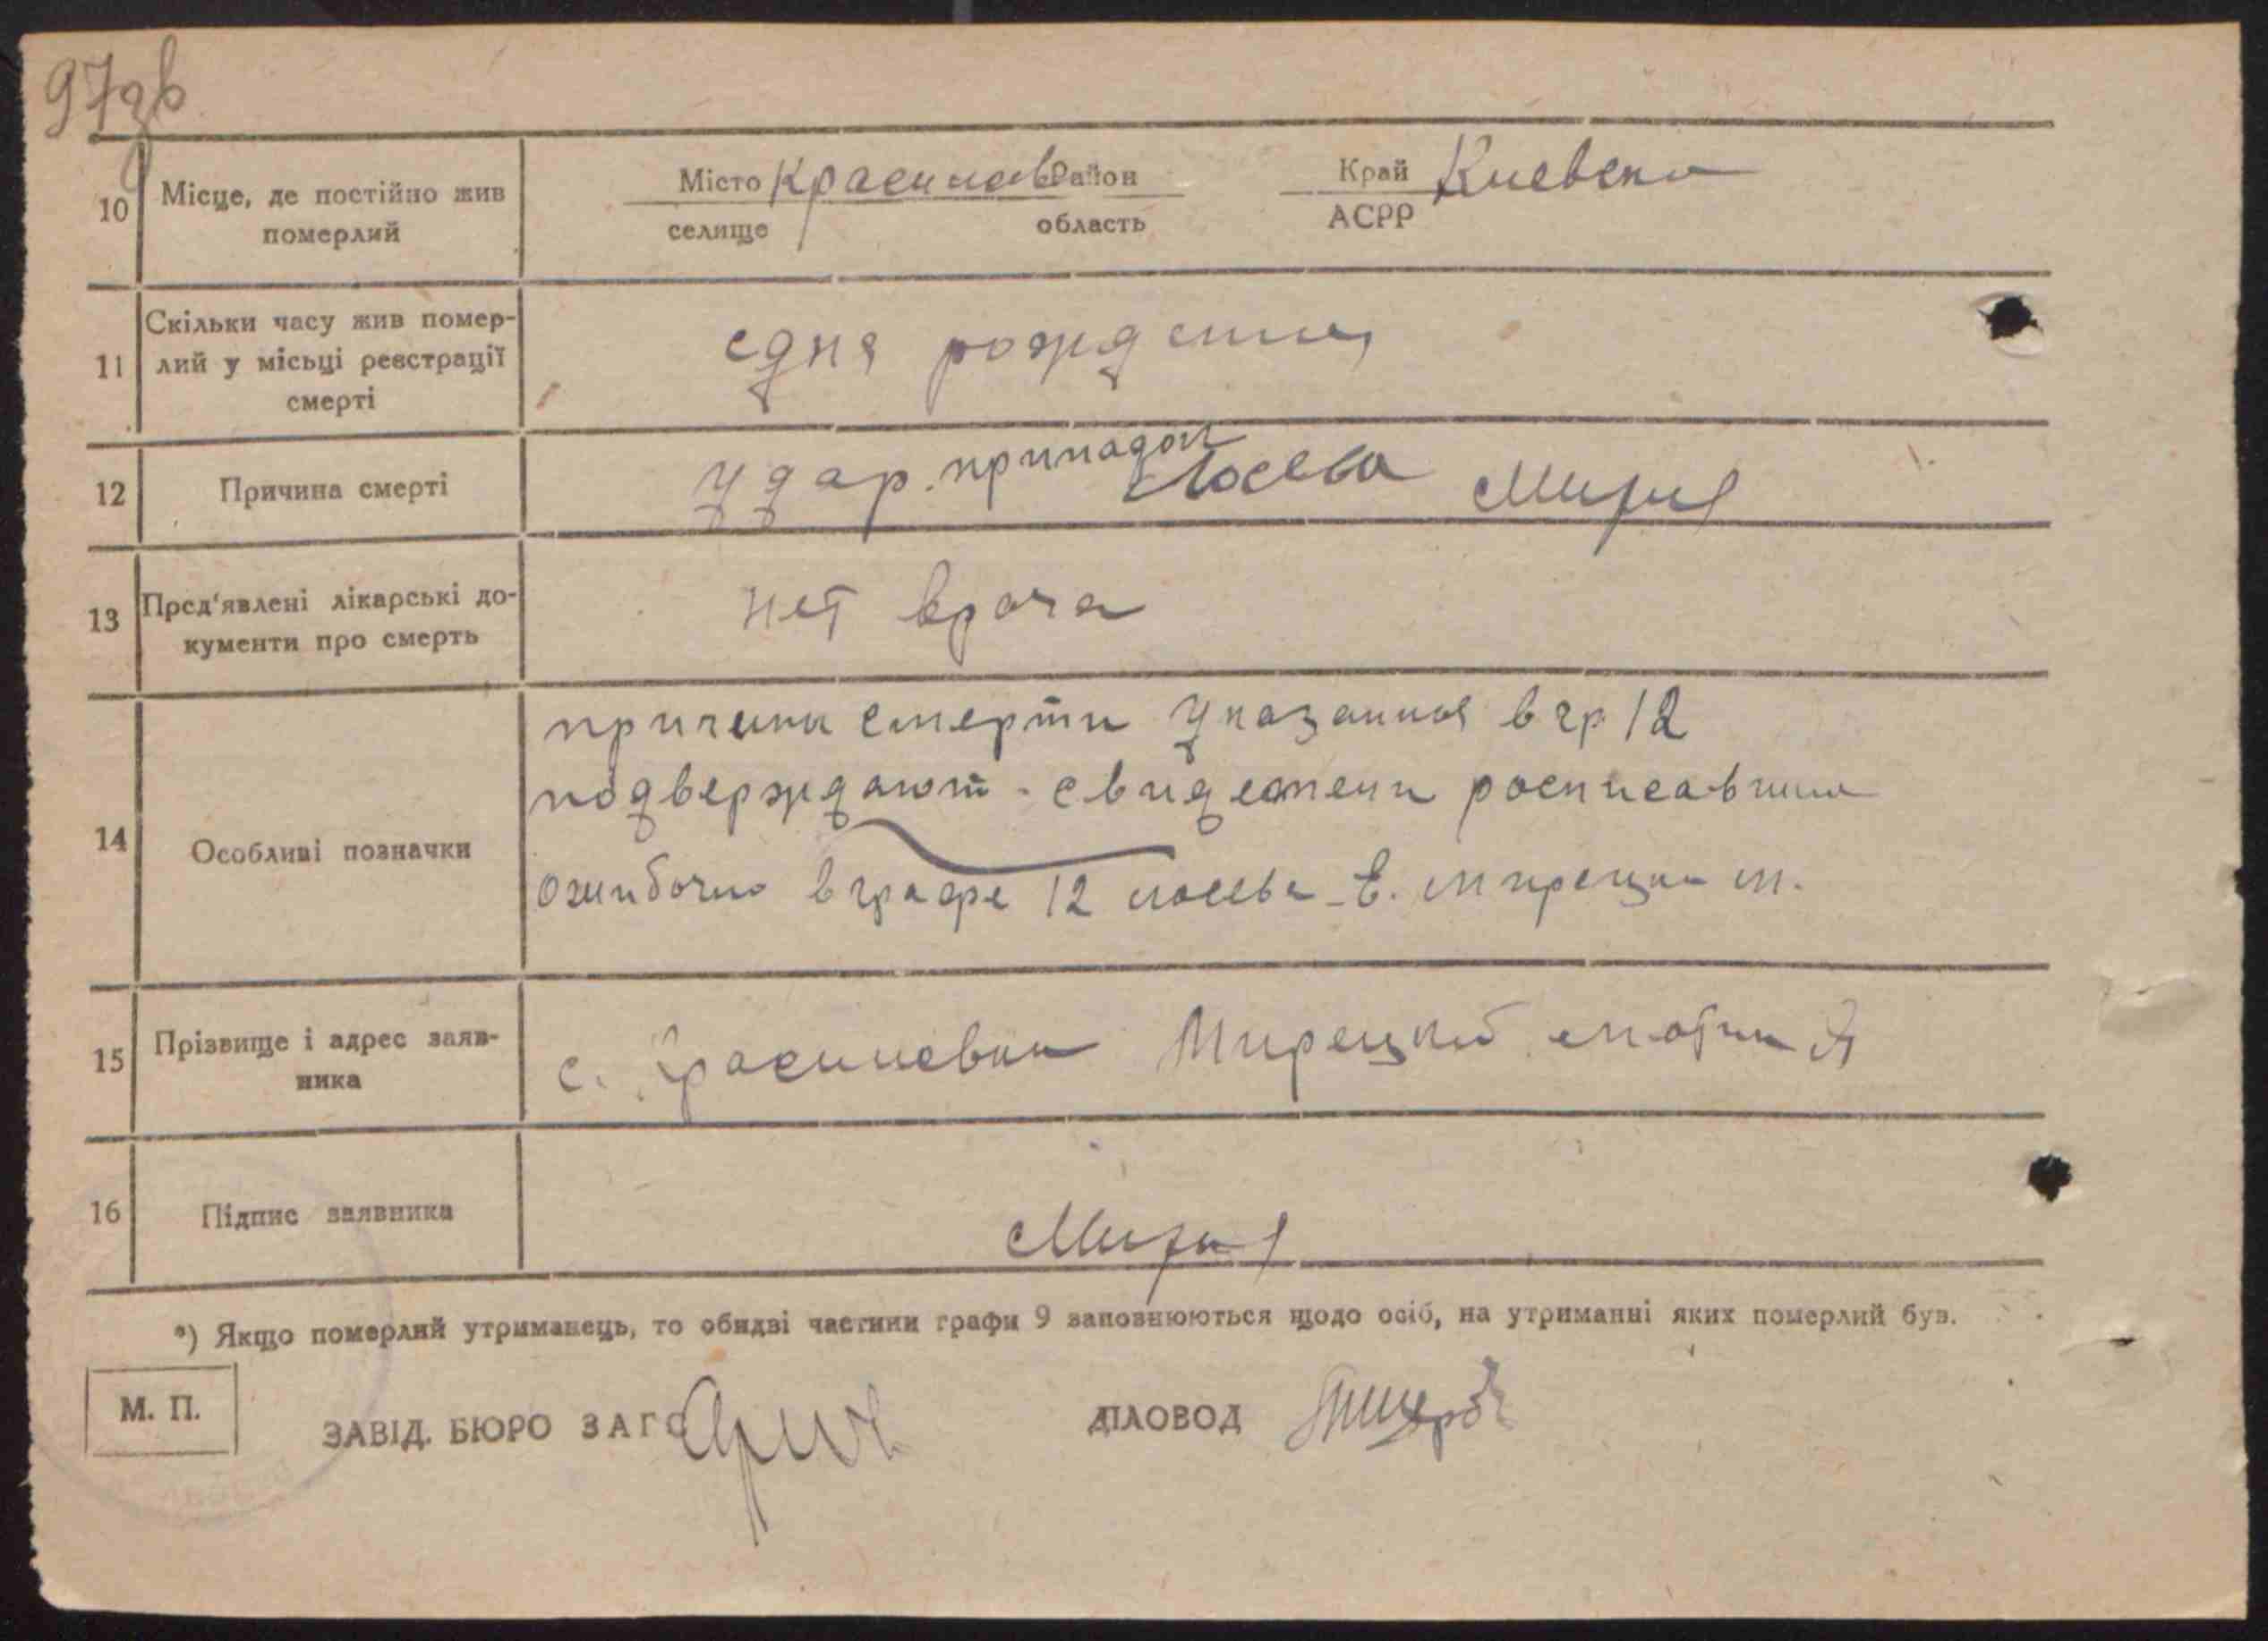 97зв
10 Місце, де постійно жив померлий
Місто Красилов Район Край Киевска
селище область АСРР
11 Скільки часу жив помер-
лий у місьці реєстрації
смерті
сдня рождения
12 Причина смерті
Удар. припадок Лосева
13 Пред'явлені лікарські до-
кументи про смерть
нет врача
14 Особливі позначки
причина смерти указанная в гр 12
подверждают свидетели росписавшие
ошибочно в графе 12 лосева Е. мирецки м.
15 Прізвище і адрес заяв-
ника
с. Мирецкий
16 Підпис заявника
*) Якщо померлий утриманець, то обидві частини графи 9 заповнюються щодо осіб, на утриманні яких померлий був.
М. П.
ЗАВІД. БЮРО ЗАГС
ДІЛОВОД